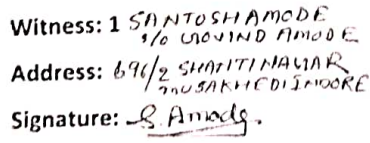 Witness: 1 SANTOSH AMODE
S/O GOVIND AMODE
Address: 696/2 SHANTINAGAR
MUSAKHEDI INDORE
Signature: S. Amode.